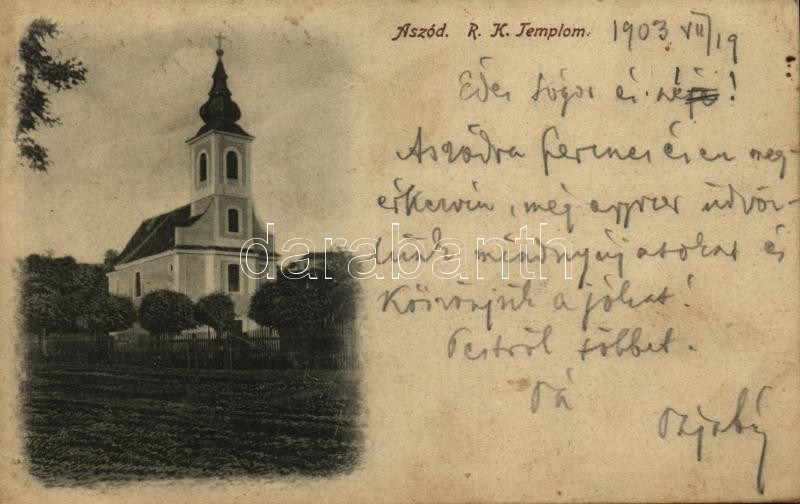 Aszód. R. K. Templom.
1903 VII/19
Édes sógor és !
Aszódra szerencsésen meg-
érkezvén, még egyszer üdvöz-
lünk mindnyájatokat és
Köszönjük a jókat!
Pestről többet.
Pá
darabanth.com